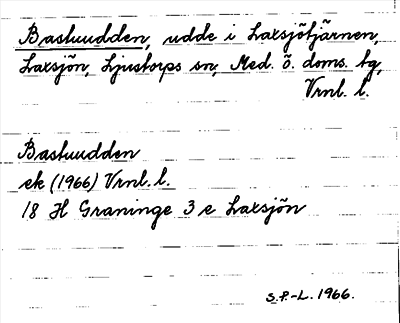 Bastuudden, udde i Laxsjötjärnen,
Laxsjön, Ljustorps sn, Med. ö. doms. tg,
Vrnl. l.
Bastuudden
ek (1966) Vrnl. l.
18 H Graninge 3 e Laxsjön
S.P.-L. 1966.